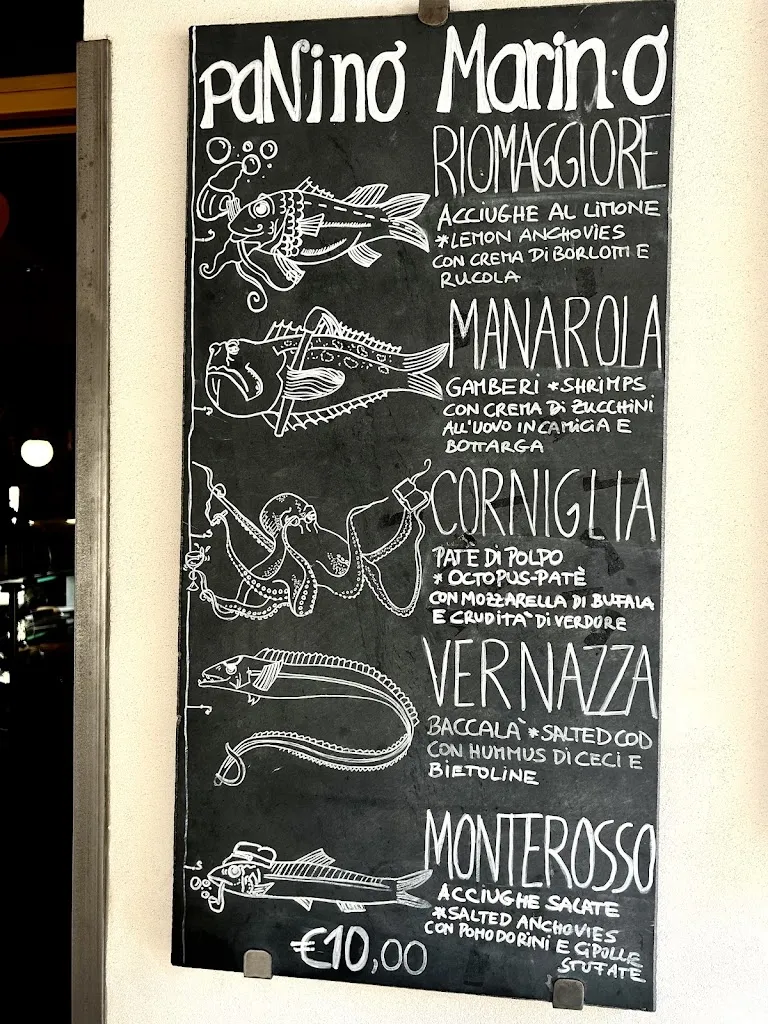 paNino Marin.o
RIOMAGGIORE
ACCIUGHE AL LIMONE
*LEMON ANCHOVIES
CON CREMA DI BORLOTTI E
RUCOLA
MANAROLA
GAMBERI *SHRIMPS
CON CREMA DI ZUCCHINI
ALL'UOVO IN CAMICIA E
BOTTARGA
CORNIGLIA
PATE DI POLPO
* OCTOPUS-PATÈ
CON MOZZARELLA DI BUFALA
E CRUDITA' DI VERDORE
VERNAZZA
BACCALA' *SALTED COD
CON HUMMUS DI CECI E
BIETOLINE
MONTEROSSO
ACCIUGHE SALATE
*SALTED ANCHOVIES
CON POMODORINI E CIPOLLE
STUFATE
€10,00